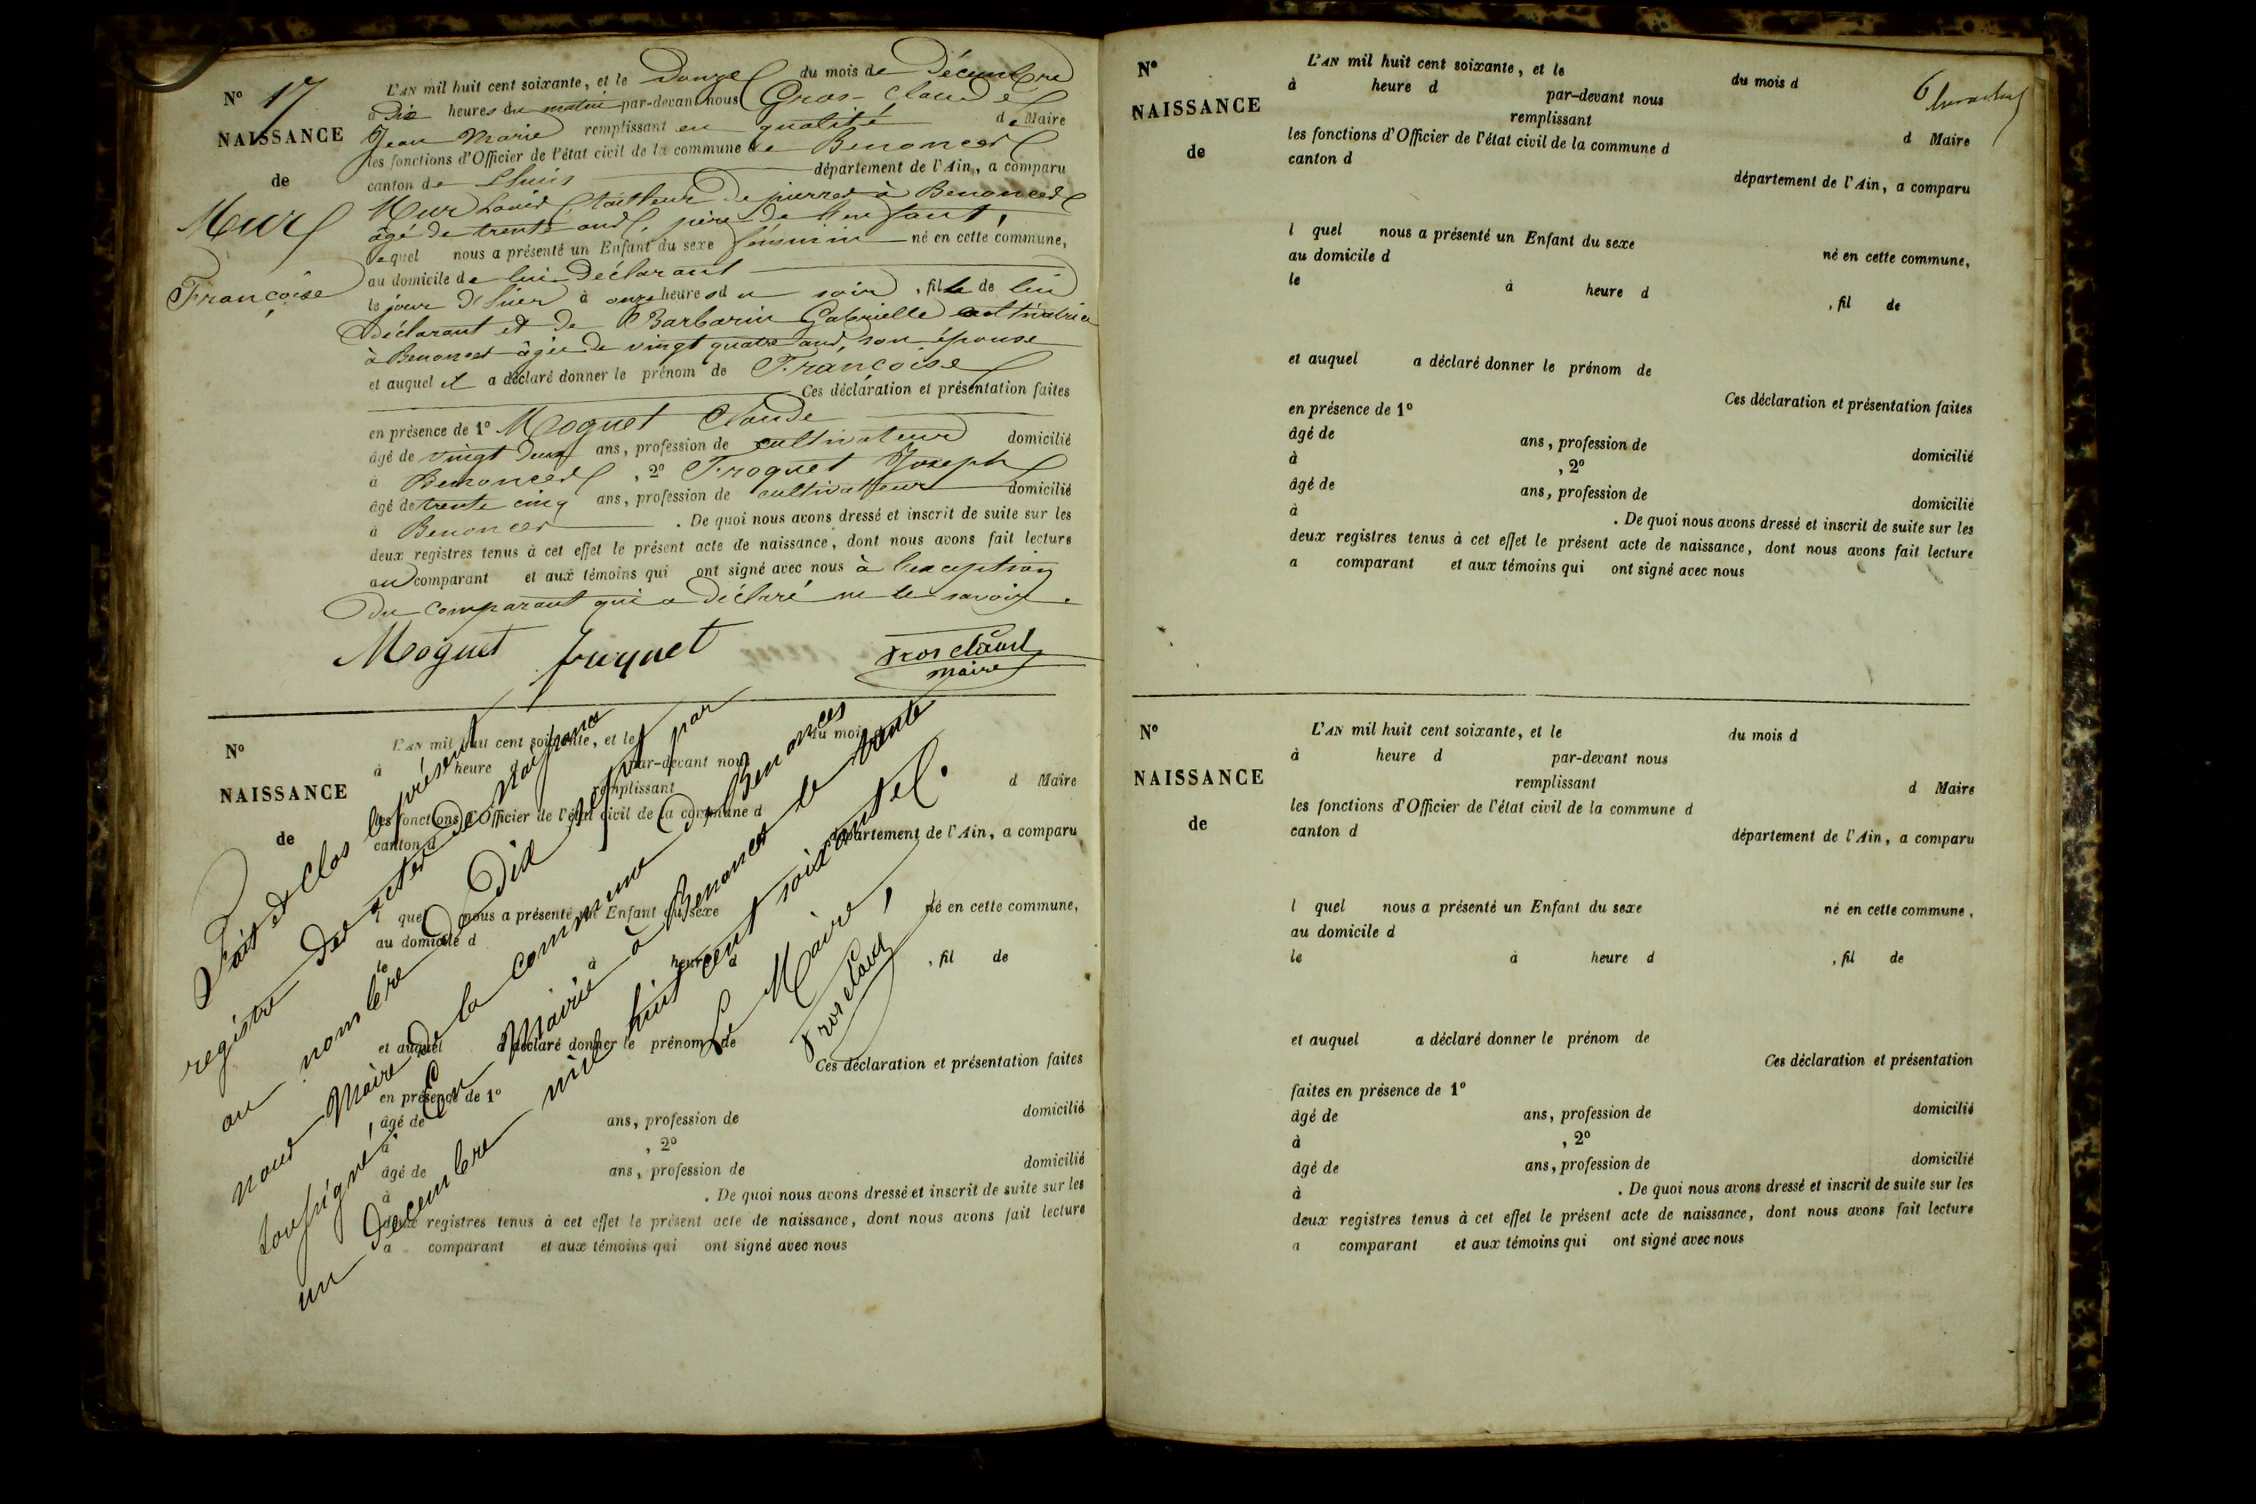 N° 17
NAISSANCE
de
Mur
Françoise
L'AN mil huit cent soixante, et le Douze du mois de Décembre
à Dix heures du matin par-devant nous Gros-Claude
Jean Marie remplissant en qualité de Maire
les fonctions d'Officier de l'état civil de la commune de Benonces
canton de Lhuis département de l'Ain, a comparu
Mur Louis, tailleur de pierres à Benonces
âgé de trente ans, père de l'enfant,
lequel nous a présenté un Enfant du sexe féminin né en cette commune,
au domicile de lui déclarant
le jour d'hier à onze heures du soir, fille de lui
Déclarant et de Barbarin Gabrielle cultivatrice
à Benonces âgée de vingt quatre ans, son épouse
et auquel il a déclaré donner le prénom de Françoise
Ces déclaration et présentation faites
en présence de 1° Moguet Claude
âgé de vingt deux ans, profession de cultivateur domicilié
à Benonces, 2° Froquet Joseph
âgé de trente cinq ans, profession de cultivateur domicilié
à Benonces. De quoi nous avons dressé et inscrit de suite sur les
deux registres tenus à cet effet le présent acte de naissance, dont nous avons fait lecture
au comparant et aux témoins qui ont signé avec nous à l'exception
du comparant qui a déclaré ne le savoir.
Moguet fuquet Gros claud
maire
N°
NAISSANCE
de
L'AN mil huit cent soixante, et le du mois d
à heure d par-devant nous
remplissant d Maire
les fonctions d'Officier de l'état civil de la commune d
canton d département de l'Ain, a comparu
l quel nous a présenté un Enfant du sexe né en cette commune,
au domicile d
le à heure d , fil de
et auquel a déclaré donner le prénom de
Ces déclaration et présentation faites
en présence de 1°
âgé de ans, profession de domicilié
à , 2°
âgé de ans, profession de domicilié
à . De quoi nous avons dressé et inscrit de suite sur les
deux registres tenus à cet effet le présent acte de naissance, dont nous avons fait lecture
a comparant et aux témoins qui ont signé avec nous
Fait et Clos le présent
registre des actes de Naissance
au nombre de Dix sept par
nous Maire de la commune de Benonces
soussigné, En Mairie à Benonces le trente
un Decembre mil huit cent soixante.
Le Maire,
Gros claud
N°
NAISSANCE
de
L'AN mil huit cent soixante, et le du mois d
à heure d par-devant nous
remplissant d Maire
les fonctions d'Officier de l'état civil de la commune d
canton d département de l'Ain, a comparu
l quel nous a présenté un Enfant du sexe né en cette commune,
au domicile d
le à heure d , fil de
et auquel a déclaré donner le prénom de
Ces déclaration et présentation faites
en présence de 1°
âgé de ans, profession de domicilié
à , 2°
âgé de ans, profession de domicilié
à . De quoi nous avons dressé et inscrit de suite sur les
deux registres tenus à cet effet le présent acte de naissance, dont nous avons fait lecture
a comparant et aux témoins qui ont signé avec nous
N°
NAISSANCE
de
L'AN mil huit cent soixante, et le du mois d
à heure d par-devant nous
remplissant d Maire
les fonctions d'Officier de l'état civil de la commune d
canton d département de l'Ain, a comparu
l quel nous a présenté un Enfant du sexe né en cette commune,
au domicile d
le à heure d , fil de
et auquel a déclaré donner le prénom de
Ces déclaration et présentation
faites en présence de 1°
âgé de ans, profession de domicilié
à , 2°
âgé de ans, profession de domicilié
à . De quoi nous avons dressé et inscrit de suite sur les
deux registres tenus à cet effet le présent acte de naissance, dont nous avons fait lecture
a comparant et aux témoins qui ont signé avec nous